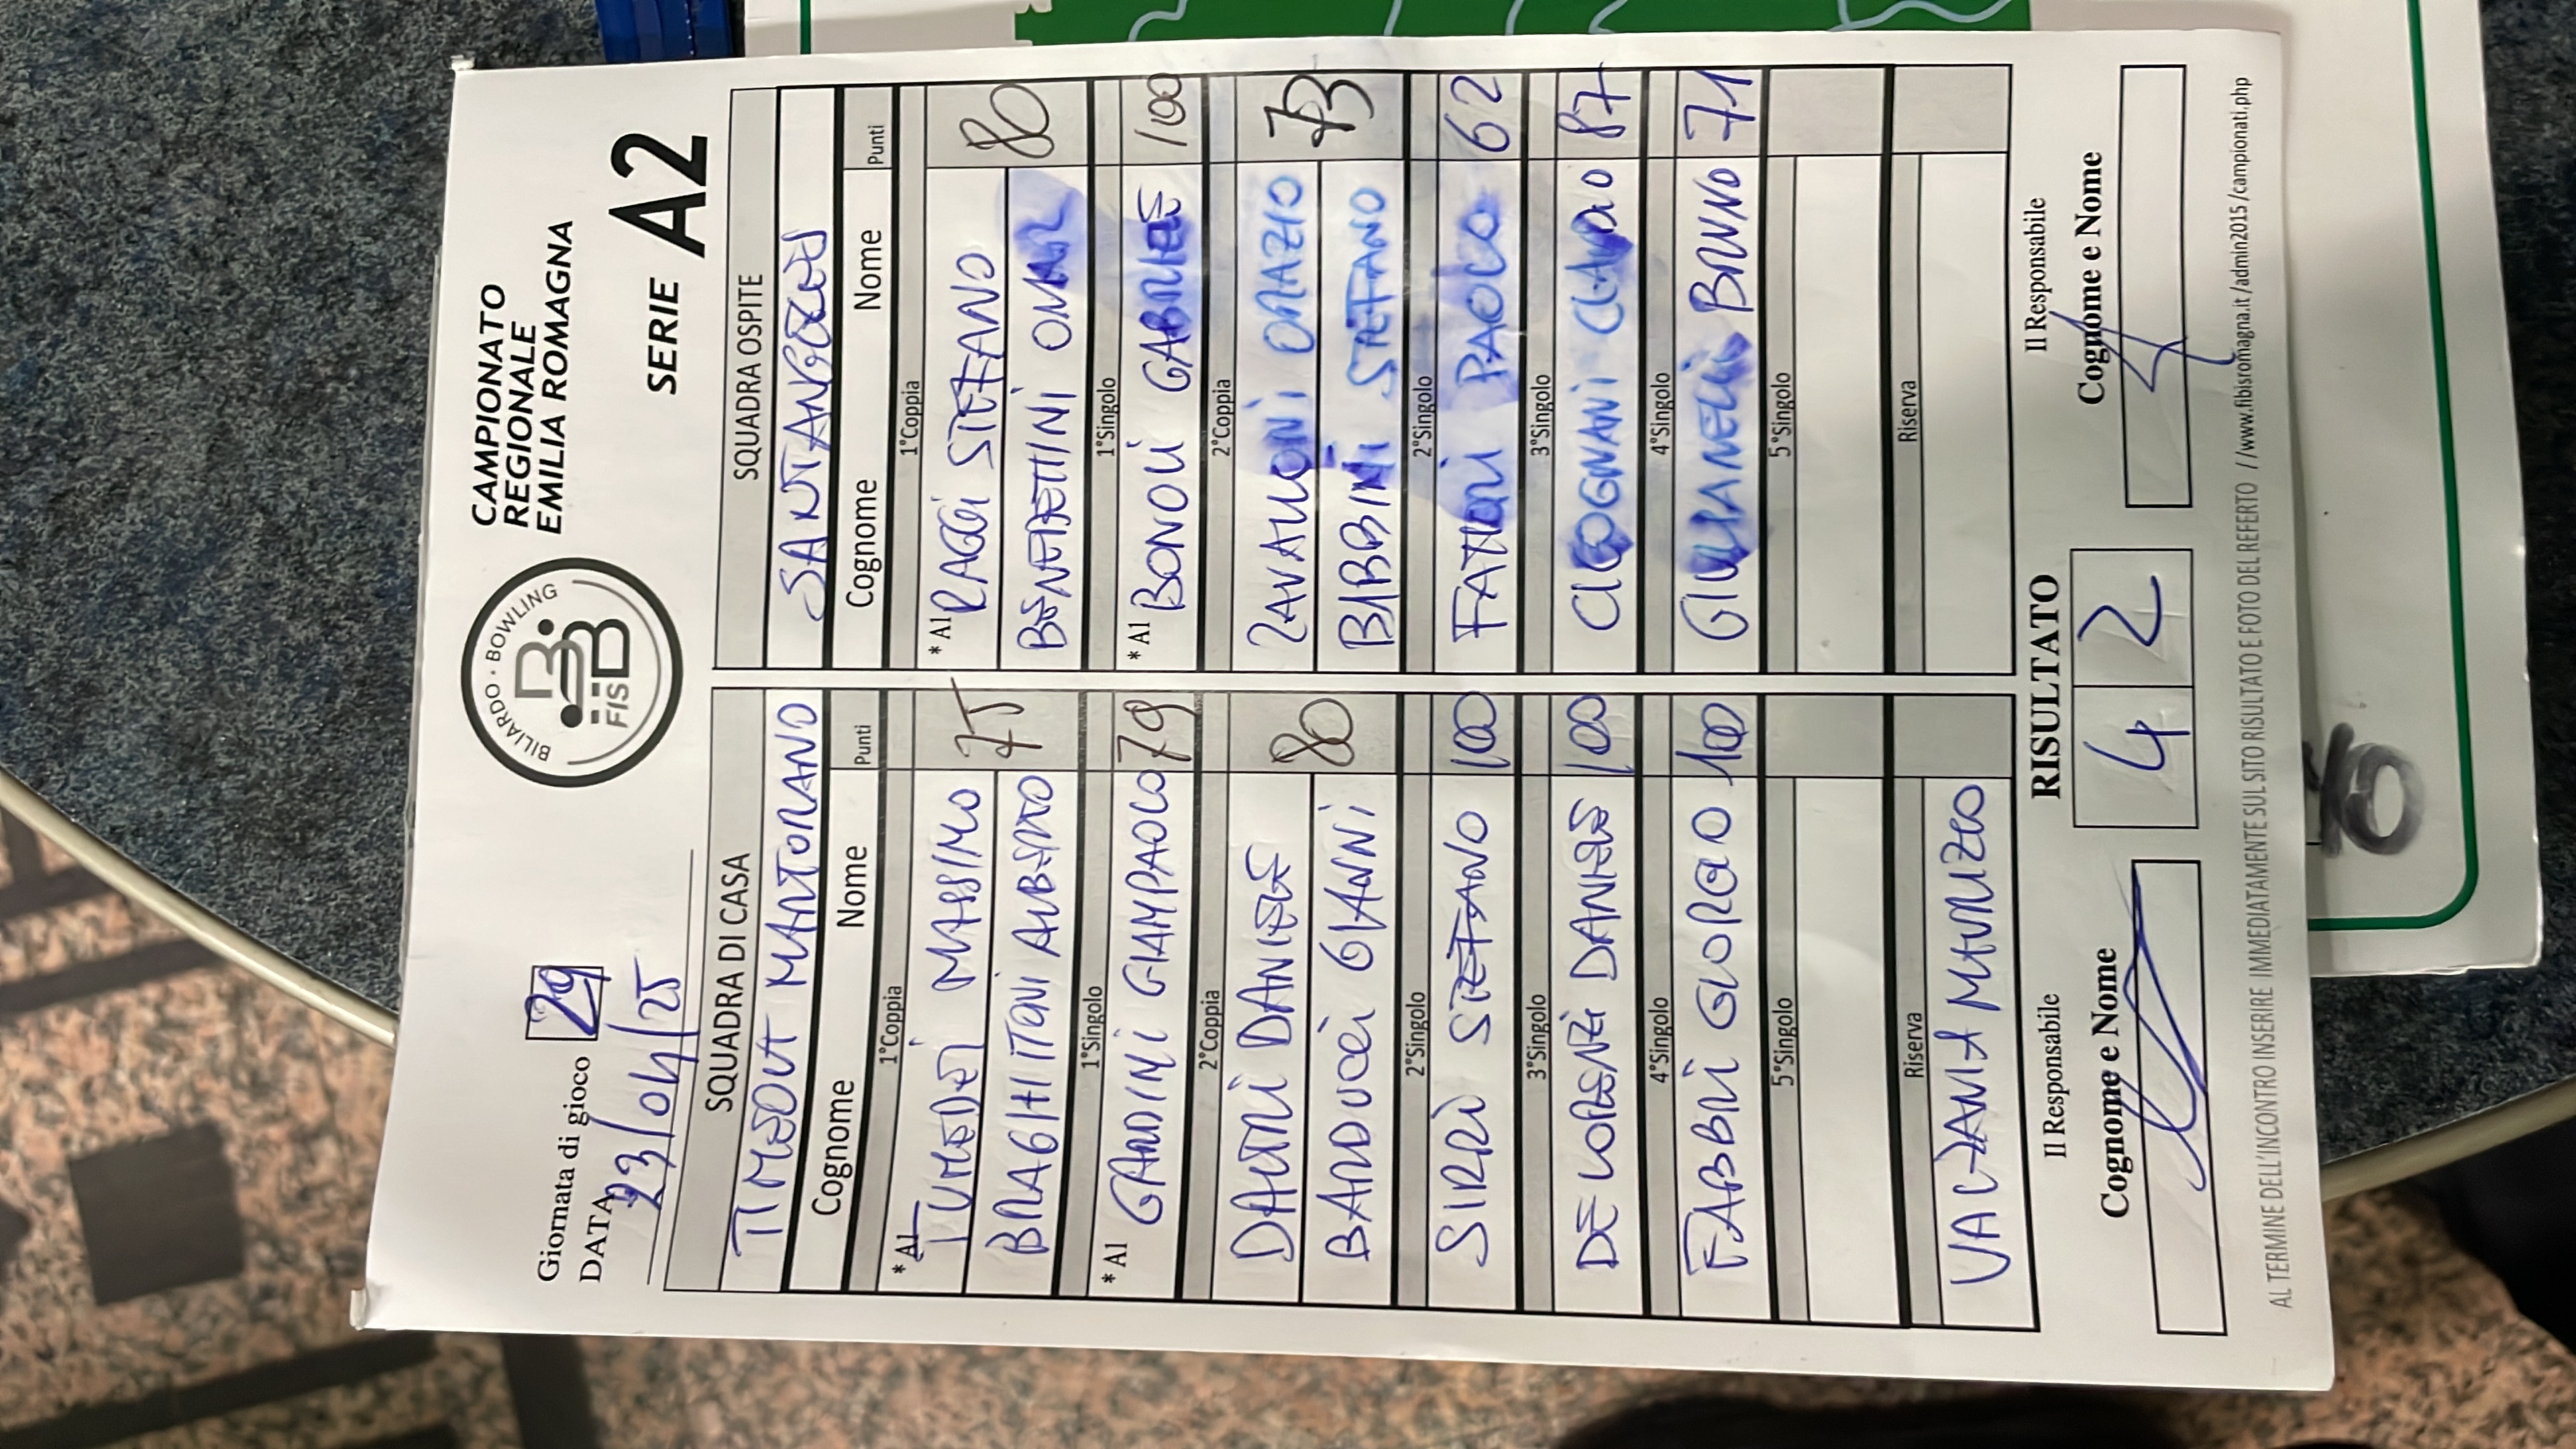 Giornata di gioco 29
DATA 23/04/25
BILIARDO · BOWLING
FISBB
CAMPIONATO
REGIONALE
EMILIA ROMAGNA
SERIE A2
SQUADRA DI CASA
TIMEOUT MARTORANO
Cognome Nome Punti
1°Coppia
* Al TUMEDEI MASSIMO
BRAGHITONI ALBERTO 75
1°Singolo
* Al GARDINI GIAMPAOLO 79
2°Coppia
DALTRI DANIELE
BARDUCCI GIANNI 80
2°Singolo
SIRRI STEFANO 100
3°Singolo
DE LORENZI DANIELE 100
4°Singolo
FABBRI GLORGIO 100
5°Singolo
Riserva
VALZANIA MAURIZIO
SQUADRA OSPITE
SANTANGELO
Cognome Nome Punti
1°Coppia
* Al RAGGI STEFANO
BENEDETTINI OMAR 80
1°Singolo
* Al BONOLI GABRIELE 100
2°Coppia
ZAVALLONI ORAZIO
BABBINI STEFANO 73
2°Singolo
FATTORI PAOLO 62
3°Singolo
CICOGNANI CLAUDIO 87
4°Singolo
GIULIANELLI BRUNO 71
5°Singolo
Riserva
Il Responsabile
Cognome e Nome
RISULTATO
4 2
Il Responsabile
Cognome e Nome
AL TERMINE DELL'INCONTRO INSERIRE IMMEDIATAMENTE SUL SITO RISULTATO E FOTO DEL REFERTO //www.fibisromagna.it/admin2015/campionati.php